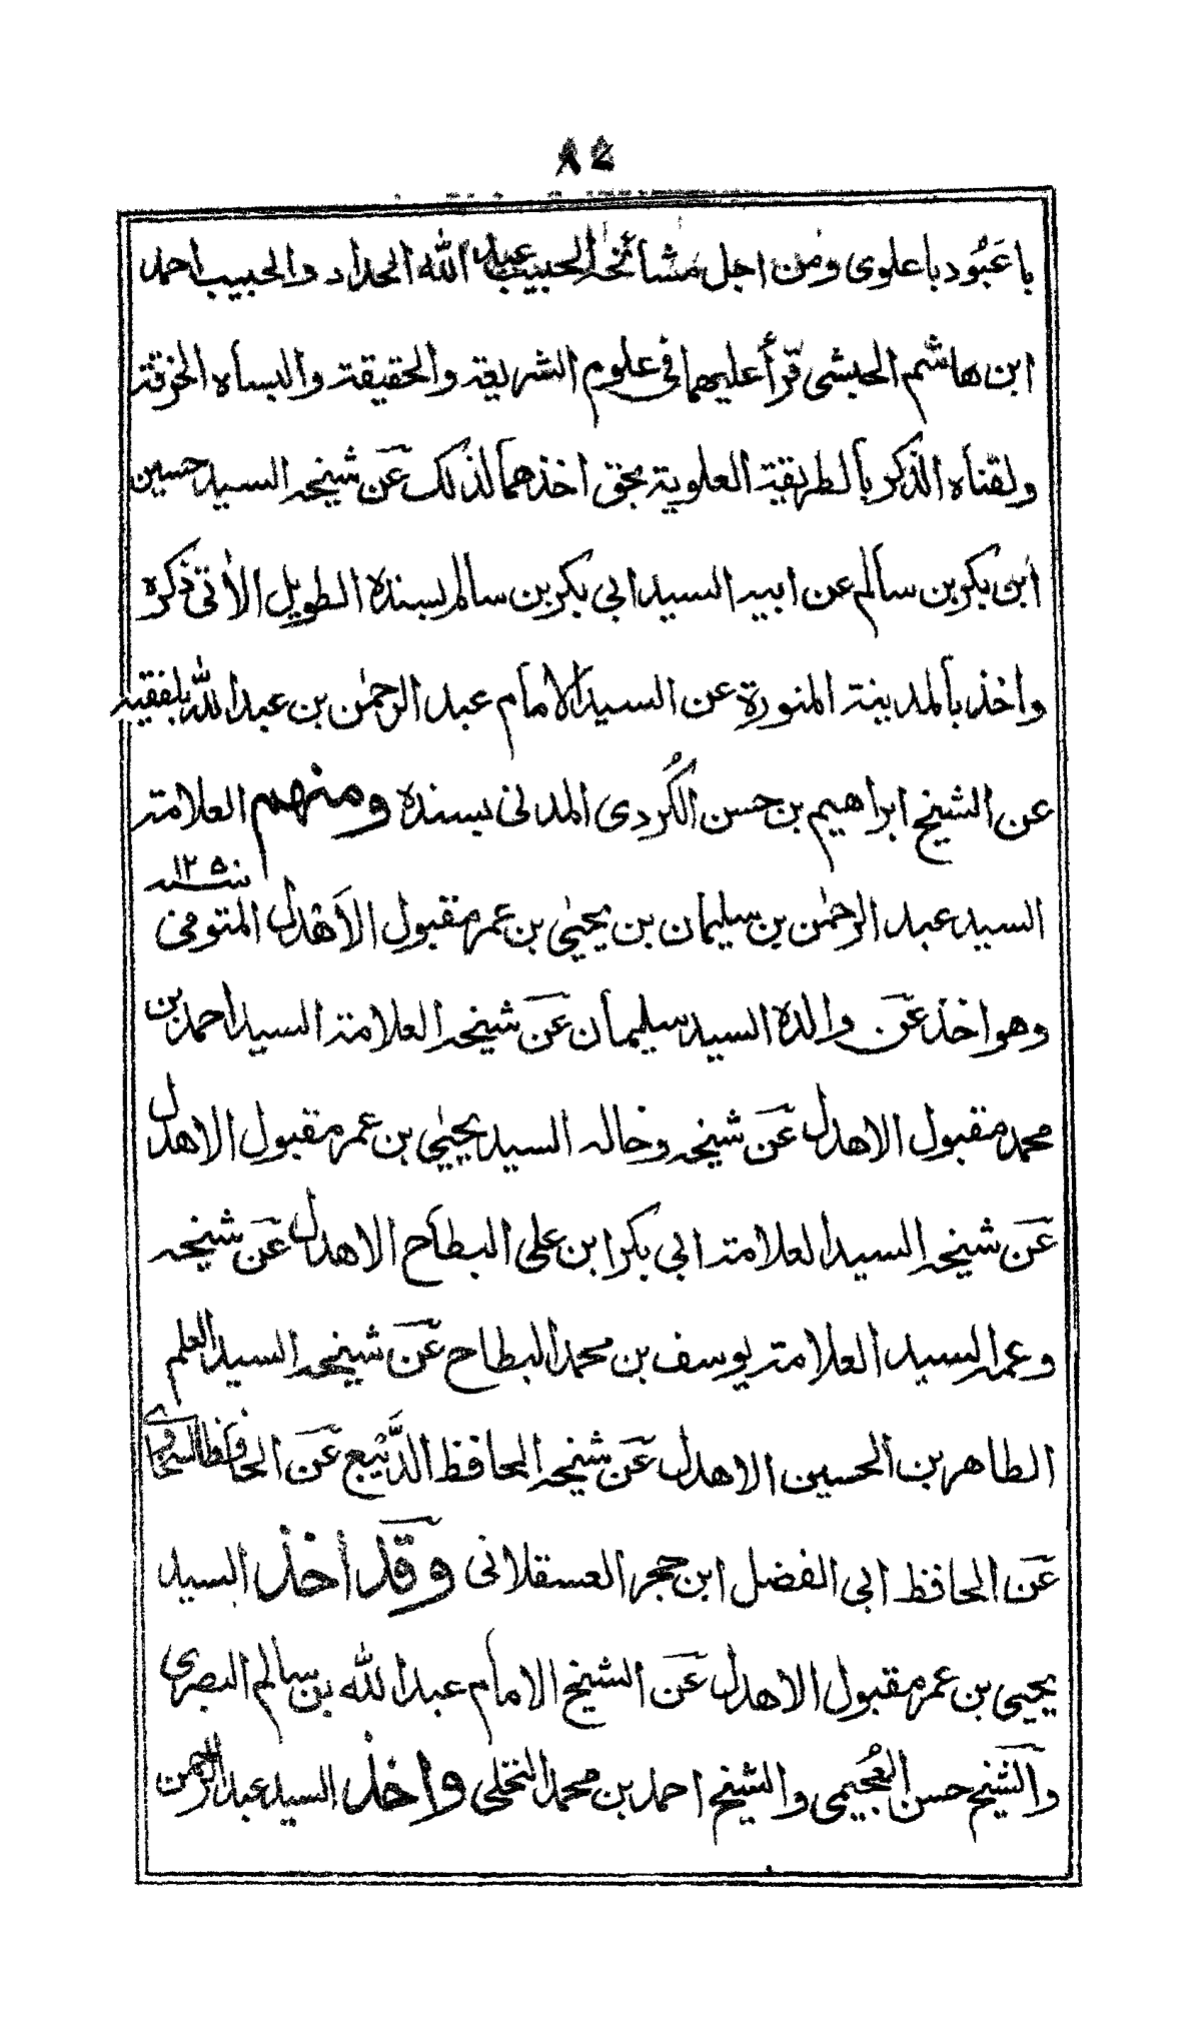 ٨٤
باعَبُود باعلوى ومن اجل مشائخه الحبيب عبد الله الحداد والحبيب احمد
ابن هاشم الحبشى قرأ عليهما فى علوم الشريعة والحقيقة والبساه الخرقة
ولقّناه الذّكر بالطريقة العلوية بحق اخذهما لذلك عَن شيخه السيد حسين
ابن بكر بن سالم عن ابيه السيد ابي بكر بن سالم بسنده الطويل الأتى ذكره
واخذ بالمدينة المنورة عن السيد الامام عبد الرحمٰن بن عبد الله بلفقيه
عن الشيخ ابراهيم بن حسن الكُردى المدنى بسنده ومنهم العلامة
السيد عبد الرحمٰن بن سليمان بن يحيٰى بن عمر مقبول الأهدل المتوفى
سنة ١٢٥٠
وهو اخذ عَن والده السيد سليمان عَن شيخه العلامة السيد احمد بن
محمد مقبول الاهدل عَن شيخه وخاله السيد يحيٰي بن عمر مقبول الاهدل
عَن شيخه السيد العلامة ابي بكر ابن على البطاح الاهدل عَن شيخه
وعمه السيد العلامة يوسف بن محمد البطاح عَن شيخه السيد العلم
الطاهر بن الحسين الاهدل عَن شيخه الحافظ الدَّيْبع عَن الحافظ السخاوى
عَن الحافظ ابى الفضل ابن حجر العسقلانى وقَد أخذ السيد
يحيى بن عمر مقبول الاهدل عَن الشيخ الامام عبد الله بن سالم البصرى
والشَيخ حسن العُجيمى والشيخ احمد بن محمد النخلى واخذ السيد عبد الرحمن